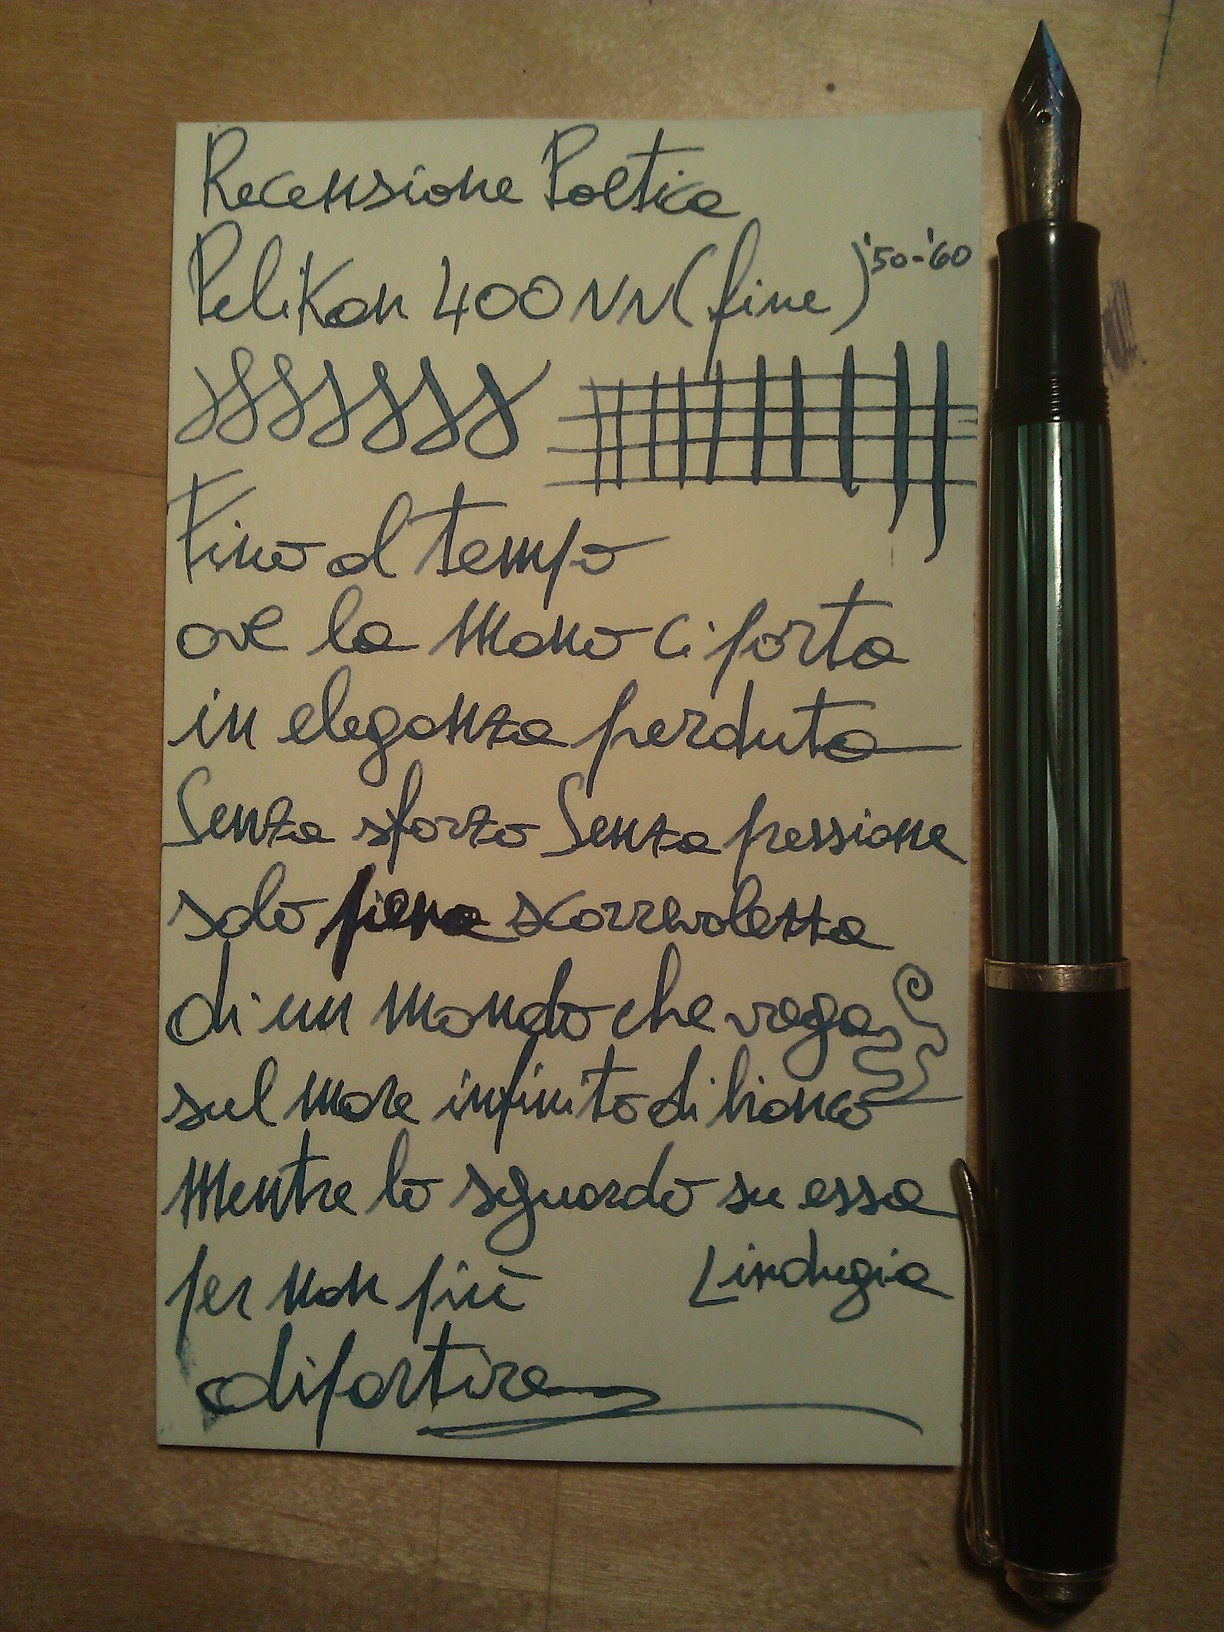 Recensione Poetica
Pelikan 400 NN (fine) '50-'60
Fino al tempo
ove la mano ci porta
in eleganza perduta
Senza sforzo Senza pressione
solo piena scorrevolezza
di un mondo che vaga
sul mare infinito di bianco
mentre lo sguardo su essa
per non più Lindugia
di partire